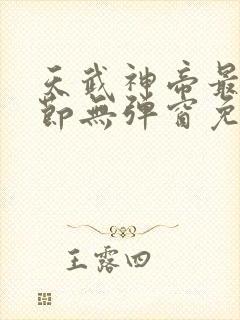 天武神帝最
節無彈窗免
王露四